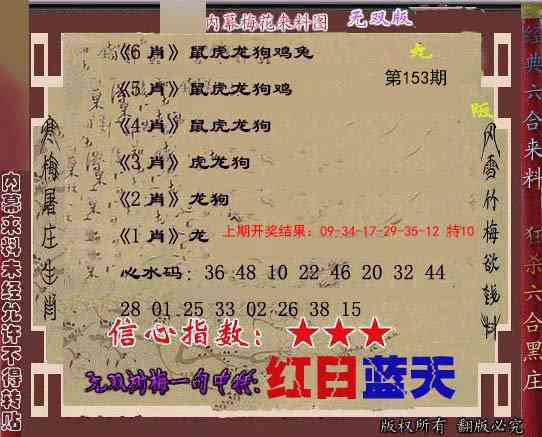 内幕梅花来料图 无双版
《6 肖》鼠虎龙狗鸡兔
第153期
《5 肖》鼠虎龙狗鸡
《4 肖》鼠虎龙狗
《3 肖》虎龙狗
《2 肖》龙狗
《1 肖》龙
上期开奖结果：09-34-17-29-35-12 特10
心水码： 36 48 10 22 46 20 32 44
28 01 25 33 02 26 38 15
信心指数：★★★
红日蓝天
版权所有 翻版必究
寒梅屠庄生肖
风雪竹梅欲钱料
内幕来料未经允许不得转贴
经典六合来料 狂杀六合黑庄